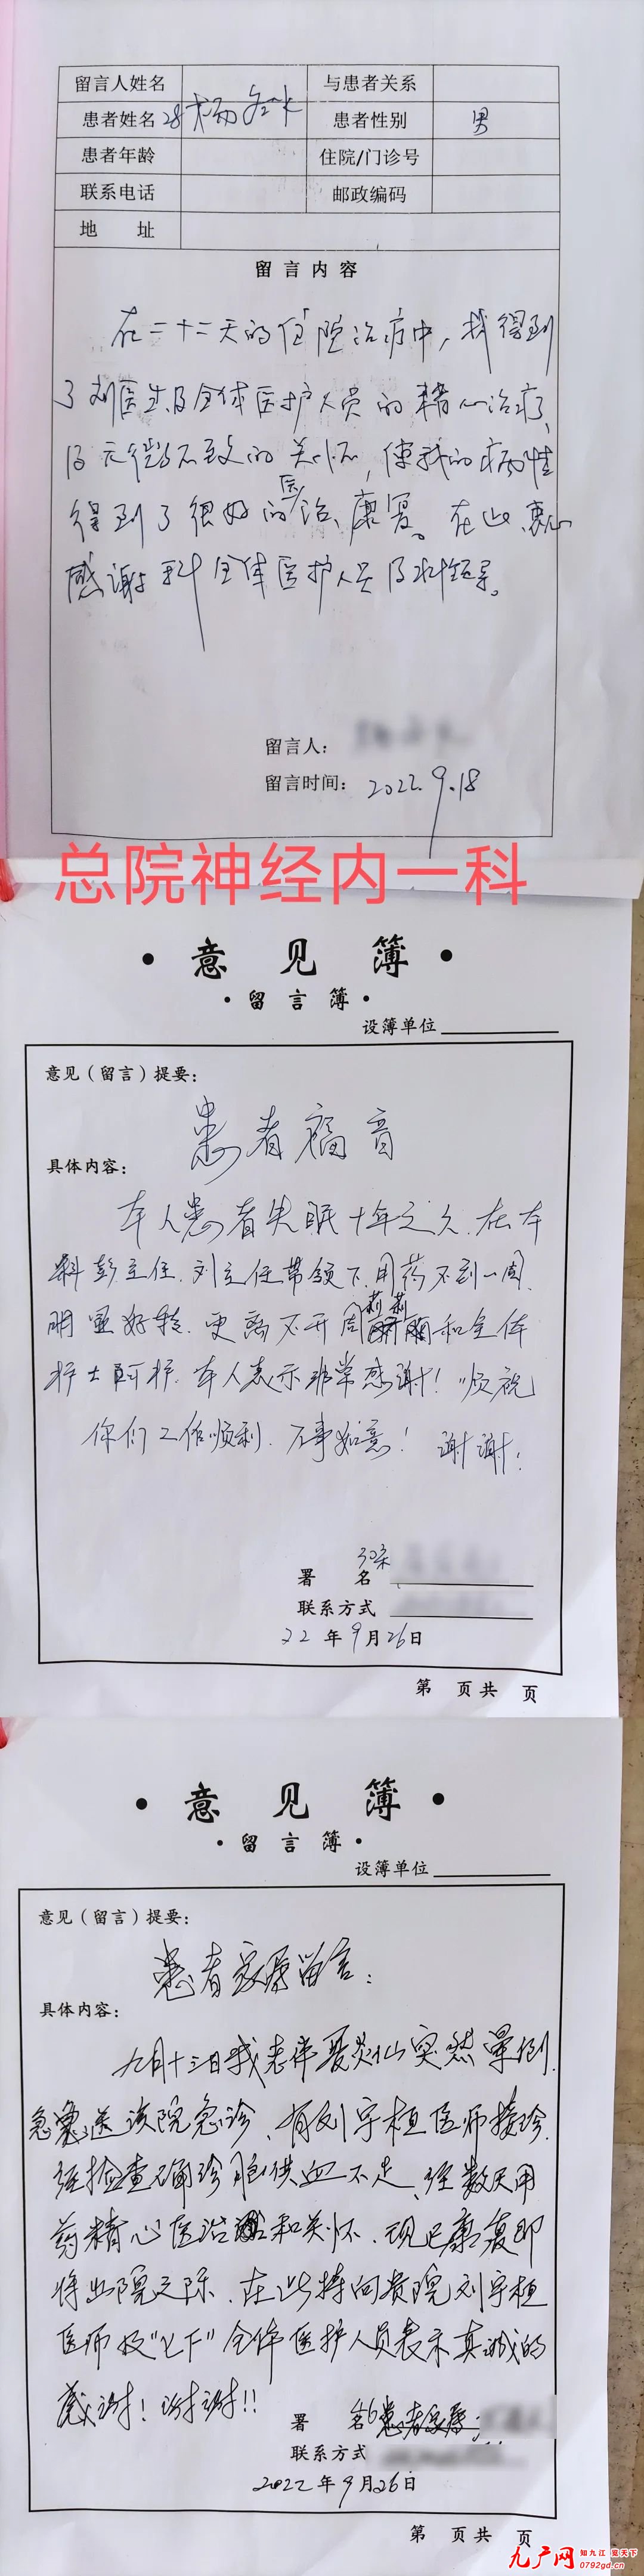 留言人姓名 与患者关系
患者姓名 28 杨 患者性别 男
患者年龄 住院/门诊号
联系电话 邮政编码
地 址
留言内容
在二十二天的住院治疗中，我得到
了刘医生及全体医护人员的精心治疗、
及无微不至的关怀，使我的病情
得到了很好的医治、康复。在此衷心
感谢科全体医护人员及科领导。
留言人：
留言时间： 2022.9.18
总院神经内一科
·意见簿·
·留言簿·
设簿单位
意见（留言）提要：
患者福音
具体内容：
本人患者失眠十年之久.在本
科彭主任.刘主任带领下.用药不到一周.
明显好转.更离不开周莉莉和全体
护士呵护.本人表示非常感谢！顺祝
你们工作顺利.万事如意！谢谢！
30床
署 名
联系方式
22年9月26日
第 页共 页
·意见簿·
·留言簿·
设簿单位
意见（留言）提要：
患者家属留言：
具体内容：
九月十三日我老伴夏炎仙突然晕倒.
急急送该院急诊、有刘宇植医师接诊.
经检查确诊脑供血不足、经数天用
药精心医治和关怀、现已康复即
将出院之际、在此特向贵院刘宇植
医师及“七下”全体医护人员表示真诚的
感谢！谢谢!!
署 名 6患者家属：
联系方式
2022年9月26日
第 页共 页
九广网 知九江 览天下
0792gd.cn